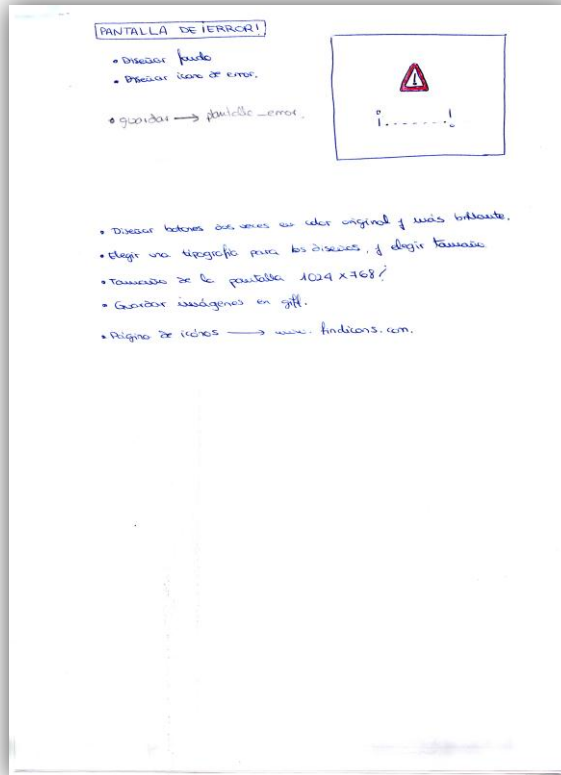 PANTALLA DE ¡ERROR!
• Diseñar fondo
• Diseñar icono de error.
• guardar → pantalla_error.
!
¡.......!
• Diseñar botones dos veces en color original y más brillante.
• Elegir una tipografía para los diseños, y elegir tamaño
• Tamaño de la pantalla 1024 x 768?
• Guardar imágenes en giff.
• Página de icónos → www.findicons.com.